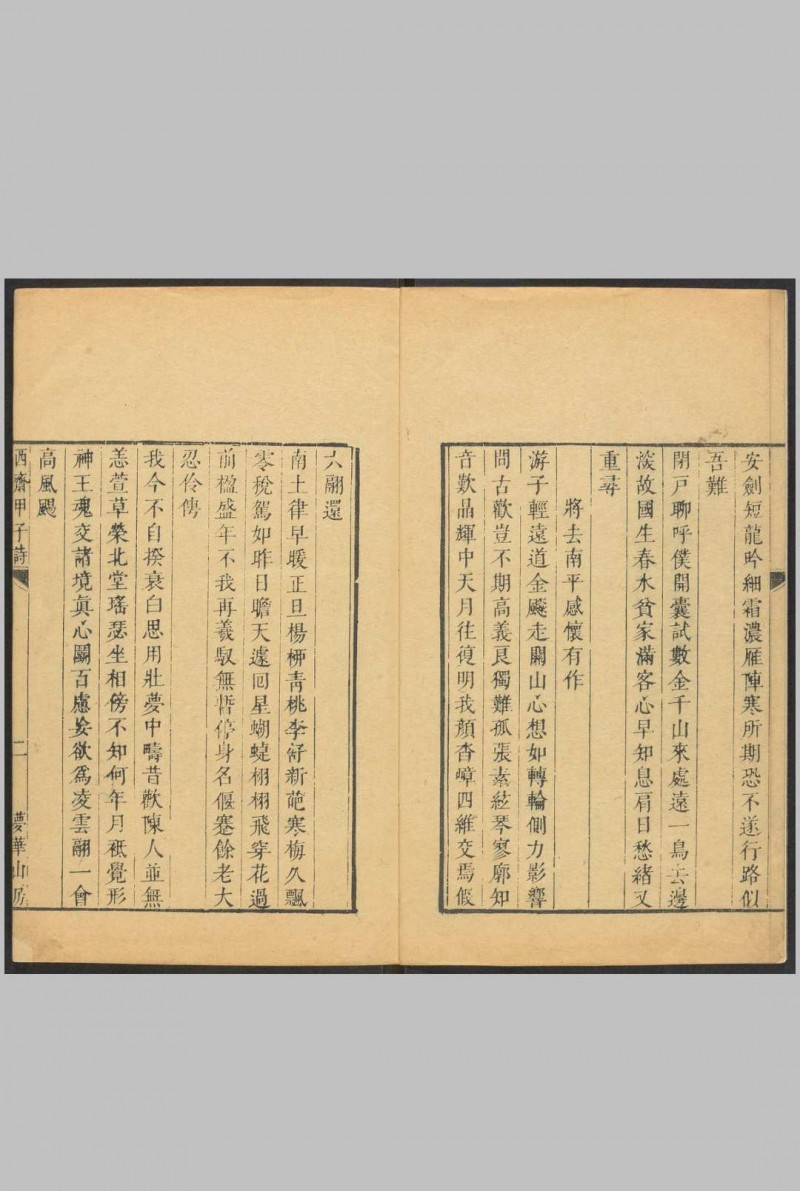 安劍短龍吟細霜濃雁陣寒所期恐不遂行路似
吾難
閉戸聊呼僕開囊試數金千山來處遠一鳥去邊
淡故國生春水貧家滿客心早知息肩日愁緒又
重尋
將去南平感懷有作
游子輕遠道金飈走關山心想如轉輪側力影響
問古歡豈不期高義良獨難孤張素絃琴寥廓知
音歎晶輝中天月往復明我顏杳嶂四維交焉假
六翮還
南土律早暖正旦楊桺青桃李舒新葩寒梅久飄
零稅駕如昨日瞻天遽回星蝴蜨栩栩飛穿花過
前楹盛年不我再羲馭無暫停身名偃蹇餘老大
忍伶俜
我今不自揆衰白思用壯夢中疇昔歡陳人並無
恙萱草榮北堂瑤瑟坐相傍不知何年月祗覺形
神王魂交諸境眞心鬭百慮妄欲爲凌雲翮一會
高風颺
西齋甲子詩
二
夢華山房